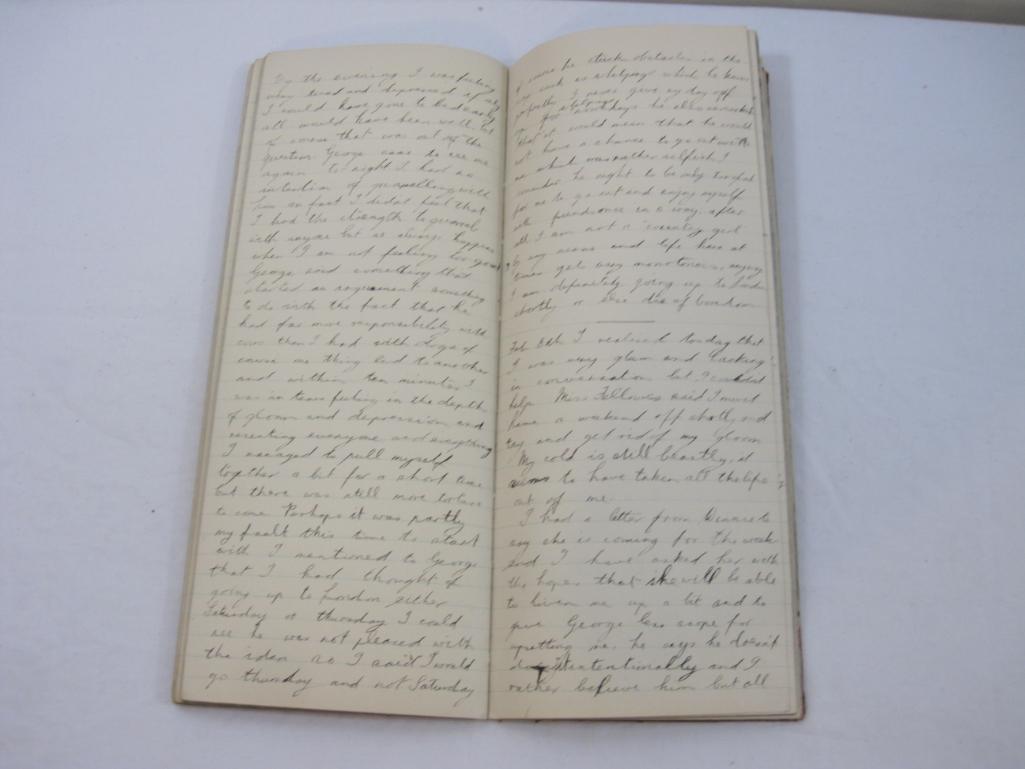 By the evening I was feeling
very tired and depressed if only
I could have gone to bed early
all would have been well, but
of course that was out of the
question. George came to see me
again to-night I had no
intention of quarrelling with
him in fact I didnt feel that
I had the strength to quarrel
with anyone but as always happens
when I am not feeling too good
George said something that
started an arguement something
to do with the fact that he
had far more responsibility with
cows than I had with dogs of
course one thing led to another
and within ten minutes I
was in tears feeling in the depth
of gloom and depression and
hating everyone and everything
I managed to pull myself
together a bit for a short time
but there was still more torture
to come Perhaps it was partly
my fault this time to start
with I mentioned to George
that I had thought of
going up to London either
Saturday or thursday I could
see he was not pleased with
the idea so I said I would
go thursday and not Saturday
of course he stuck obstacles in the
way such as whelpings which he knows
perfectly I never give my day off
up for
that it would mean that he would
not have a chance to go out with
me which was rather selfish I
consider he ought to be only too glad
for me to go out and enjoy myself
with in a way after
all I am not a country girl
by any means and life here at
times gets very monotonous, anyway
I am definately going up to London
shortly or else die of boredom
Feb 8th I realised to-day that
I was very glum and lacking
in conversation but I couldnt
help Miss Fellowes said I must
have a weekend off shortly and
try and get rid of my gloom
My cold is still beastly, it
seems to have taken all the life
out of me.
I had a letter from to
say she is coming for the week
end I have asked her with
the hopes that she will be able
to liven me up a bit and to
give George less scope for
upsetting me, he says he doesnt
do it intentionally and I
rather believe him but all